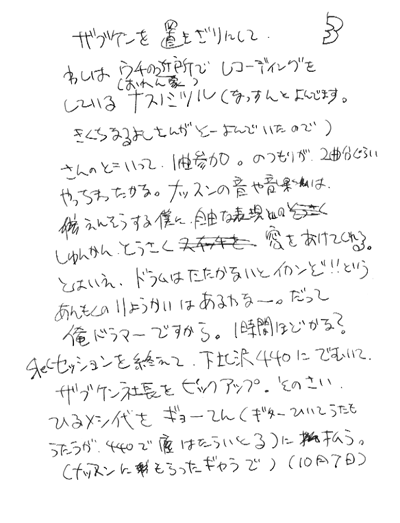 ザブケンを置きざりにして.
3
わしは ウチの近所で レコーディングを
(おれん家)
している ナスノミツル (なっすんとよんでます。
きくちなるよしさんがそーよんでいたので)
さんのとこいって、1曲参加。のつもりが、2曲分ぐらい
やっちまったかな。ナッスンの音や音楽は、
即えんそうする僕に、自由な表現との
しゅんかん とうさく 愛をあけてくれる。
とはいえ、ドラムはたたかないとイカンど!!という
あんもくのりょうかいはあるわなー。だって
俺ドラマーですから。1時間ほどかな?
セッションを終えて、下北沢440にでむいて、
ザブケン社長をピックアップ。そのさい、
ひるメシ代をギョーてん(ギターひいてうたも
うたうが、440で夜はたらいとる)に払う。
(ナッスンにもらったギャラで) (10月7日)